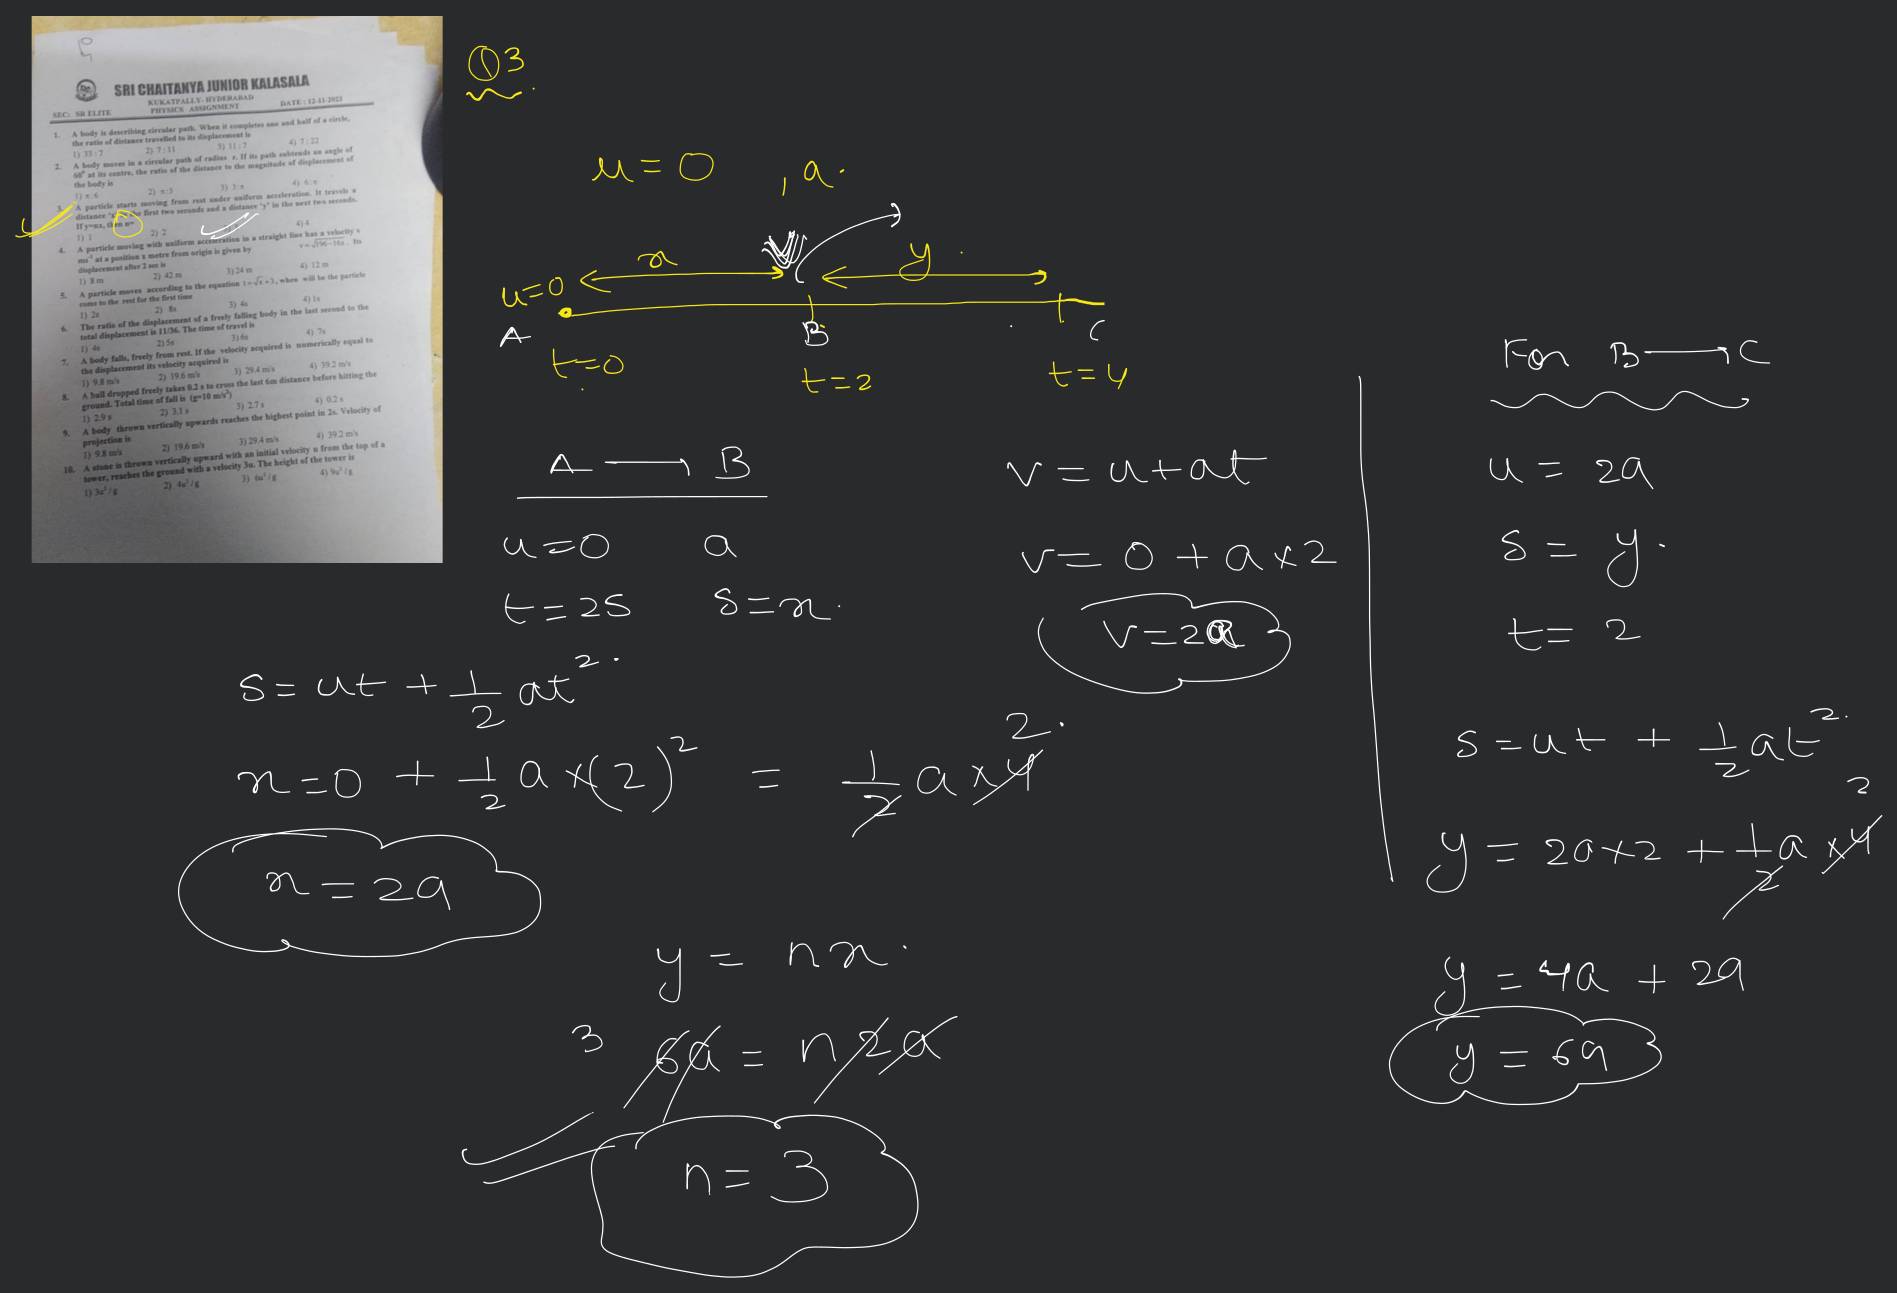 SRI CHAITANYA JUNIOR KALASALA
KUKATPALLY- HYDERABAD
SEC: SR ELITE PHYSICS ASSIGNMENT DATE : 12-11-2023
1. A body is describing circular path. When it completes one and half of a circle,
the ratio of distance travelled to its displacement is
1) 33 : 7 2) 7 : 11 3) 11 : 7 4) 7 : 22
2. A body moves in a circular path of radius r. If its path subtends an angle of
60° at its centre, the ratio of the distance to the magnitude of displacement of
the body is
1) π : 6 2) π : 3 3) 3 : π 4) 6 : π
3. A particle starts moving from rest under uniform acceleration. It travels a
distance first two seconds and a distance "y" in the next two seconds.
If y=nx, then n=
1) 1 2) 2 4) 4
4. A particle moving with uniform acceleration in a straight line has a velocity v
ms⁻¹ at a position x metre from origin is given by v=√196-16x . Its
displacement after 2 sec is
1) 8 m 2) 42 m 3) 24 m 4) 12 m
5. A particle moves according to the equation t=√x+3, when will be the particle
come to the rest for the first time
1) 2s 2) 8s 3) 4s 4) 1s
6. The ratio of the displacement of a freely falling body in the last second to the
total displacement is 11/36. The time of travel is
1) 4s 2) 5s 3) 6s 4) 7s
7. A body falls, freely from rest. If the velocity acquired is numerically equal to
the displacement its velocity acquired is
1) 9.8 m/s 2) 19.6 m/s 3) 29.4 m/s 4) 39.2 m/s
8. A ball dropped freely takes 0.2 s to cross the last 6m distance before hitting the
ground. Total time of fall is (g=10 m/s²)
1) 2.9 s 2) 3.1 s 3) 2.7 s 4) 0.2 s
9. A body thrown vertically upwards reaches the highest point in 2s. Velocity of
projection is
1) 9.8 m/s 2) 19.6 m/s 3) 29.4 m/s 4) 39.2 m/s
10. A stone is thrown vertically upward with an initial velocity u from the top of a
tower, reaches the ground with a velocity 3u. The height of the tower is
1) 3u²/g 2) 4u²/g 3) 6u²/g 4) 9u²/g
Q3
u = 0 , a.
x y
u=0
A B C
t=0 t=2 t=4
A → B
u=0 a
t=2s s=x.
s = ut + 1/2 at²
x = 0 + 1/2 a ×(2)² = 1/2 a × 4 2
x = 2a
v = u + at
v = 0 + a × 2
v = 2a
y = nx
3 6a = n 2a
n = 3
For B → C
u = 2a
s = y.
t = 2
s = ut + 1/2 at²
y = 2a×2 + 1/2 a × 4 2
y = 4a + 2a
y = 6a